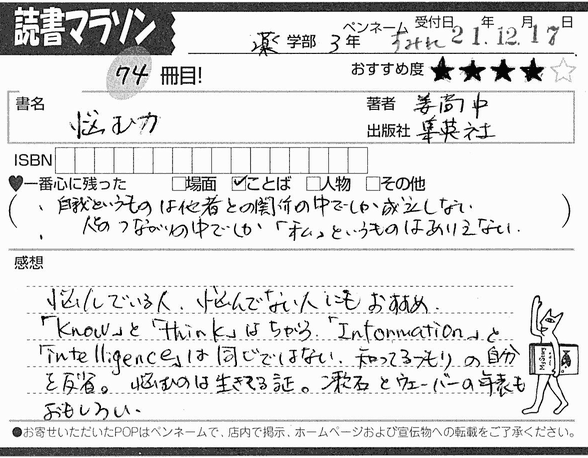 読書マラソン
薬学部 3年 ペンネーム すみれ 受付日 21年 12月 17日
74 冊目! おすすめ度 ★★★★☆
書名 悩む力
著者 姜尚中
出版社 集英社
ISBN
♥一番心に残った □場面 ☑ことば □人物 □その他
( 、自我というものは他者との関係の中でしか成立しない
、人のつながりの中でしか「私」というものはありえない. )
感想
悩んでいる人、悩んでない人にもおすすめ.
「know」と「think」はちがう.「Information」と
「intelligence」は同じではない. 知ってるつもりの自分
を反省。悩むのは生きてる証。漱石とウェーバーの年表も
おもしろい.
●お寄せいただいたPOPはペンネームで、店内で掲示、ホームページおよび宣伝物への転載をご了承ください。